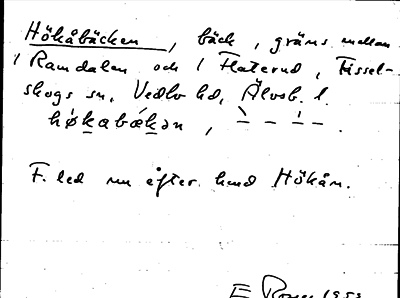 Hökåbäcken, bäck, gräns mellan
1 Ramdalen och 1 Haterud, Tissel-
skogs sn, Vedbo hd, Älvsb. l.
høkabækən, – – – –.
F. led nu efter hmd Hökån.
E Rosen 1933